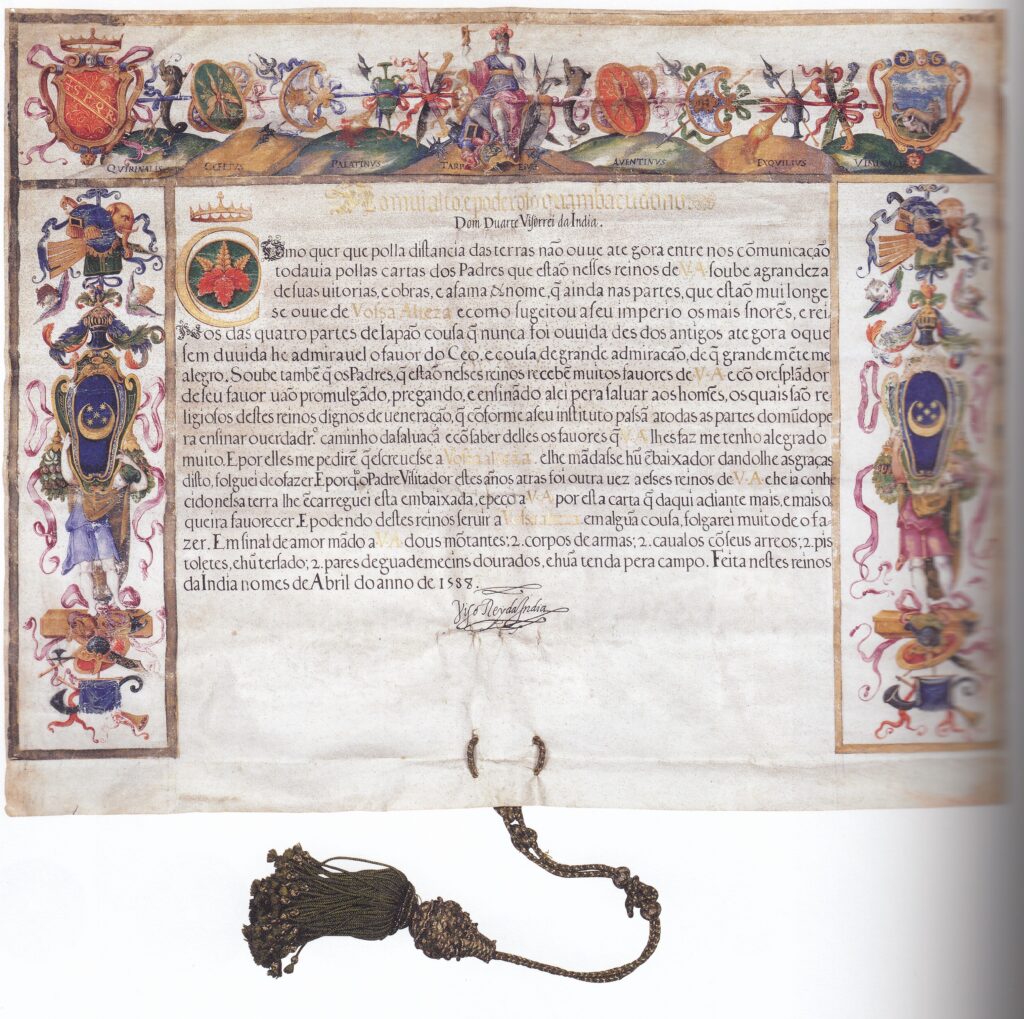 S.P.Q.R
QVIRINALIS CELIVS PALATINVS TARPEIVS AVENTINVS EXQVILIVS VIMINALIS
Ao mui alto e poderoso Quambacudono
Dom Duarte Visorrei da India.
Como quer que polla distancia das terras não ouue ate gora entre nos cõmunicação
todauia pollas cartas dos Padres que estão nesses reinos de V·A soube a grandeza
de suas uitorias, e obras, e a fama & nome, q̃ ainda nas partes, que estão mui longe
se ouue de Vossa Alteza e como sugeitou a seu imperio os mais sñores, e rei
nos das quatro partes de Iapão cousa q̃ nunca foi ouuida des dos antigos ate gora o que
sem duuida he admirauel o fauor do Ceo, e cousa de grande admiracão, de q̃ grandemẽte me
alegro. Soube tambẽ q̃ os Padres, q̃ estão nesses reinos recebẽ muitos fauores de V·A e cõ o resplãdor
de seu fauor uão promulgãdo, pregando, e ensinãdo a lei pera saluar aos homẽs, os quais são reli
giosos destes reinos dignos de ueneração, q̃ cõforme a seu instituto passã a todas as partes do mũdo pe
ra ensinar o uerdadr.º caminho da saluaçã e cõ saber delles os fauores q̃ V·A lhes faz me tenho alegrado
muito. E por elles me pedirẽ q̃ escreuesse a Vossa alteza. e lhe mãdasse hũ ẽbaixador dandolhe as graças
disto, folguei de o fazer. E porq̃ o Padre Visitador estes años atras foi outra uez a esses reinos de V·A· e he ia conhe
cido nessa terra lhe ẽcarreguei esta embaixada, e peco a V·A por esta carta q̃ daqui adiante mais, e mais o
queira fauorecer. E podendo destes reinos seruir a Vossa alteza em algũa cousa, folgarei muito de o fa
zer. Em sinal de amor mãdo a V·A dous mõtantes; 2. corpos de armas; 2. caualos cõ seus arreos; 2. pis
toletes, e hũ tersado; 2. pares de guademecins dourados, e hũa tenda pera campo. Feita nestes reinos
da India no mes de Abril do anno de 1588.
Viso Rey da India